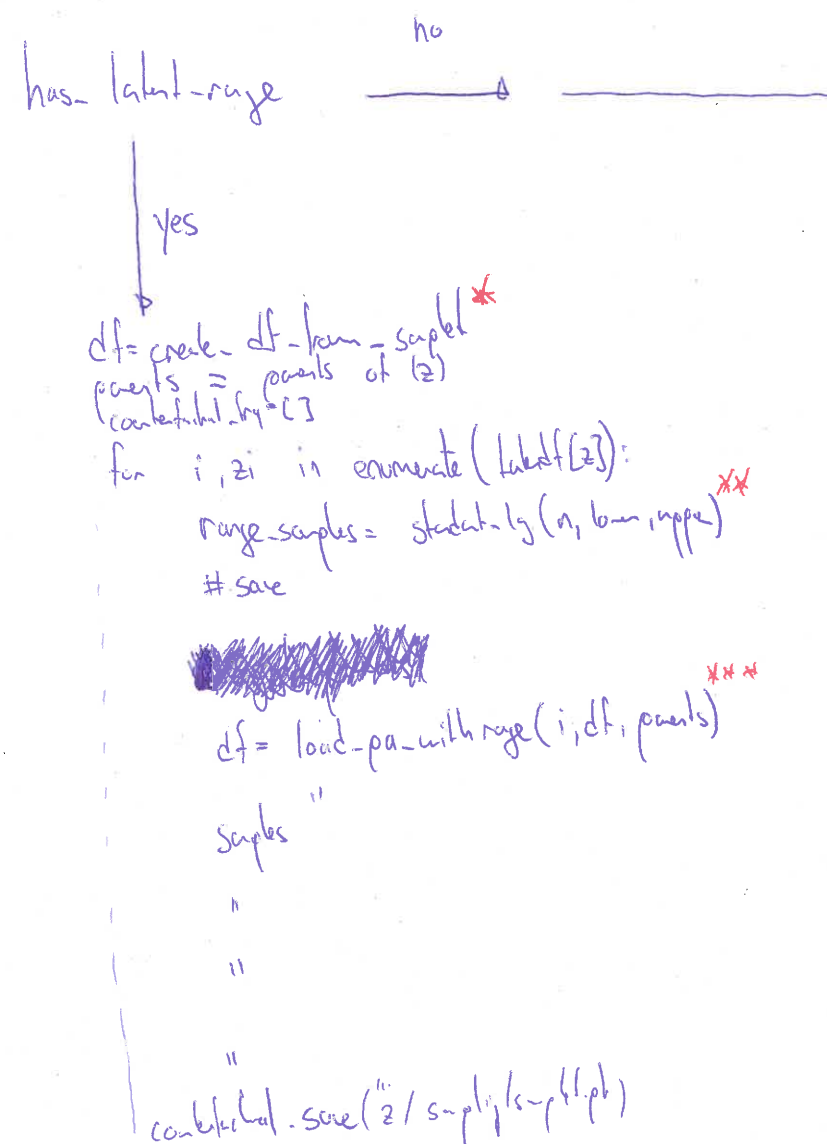 no
has_latent_range
yes
df = create_df_from_samples *
parents = parents of (z)
counterfactual_ = []
for i, zi in enumerate (df[z]):
range_samples = (n, lower, upper) **
# save
df = load_pa_with range (i, df, parents) ***
samples "
"
"
"
counterfactual.save("z/